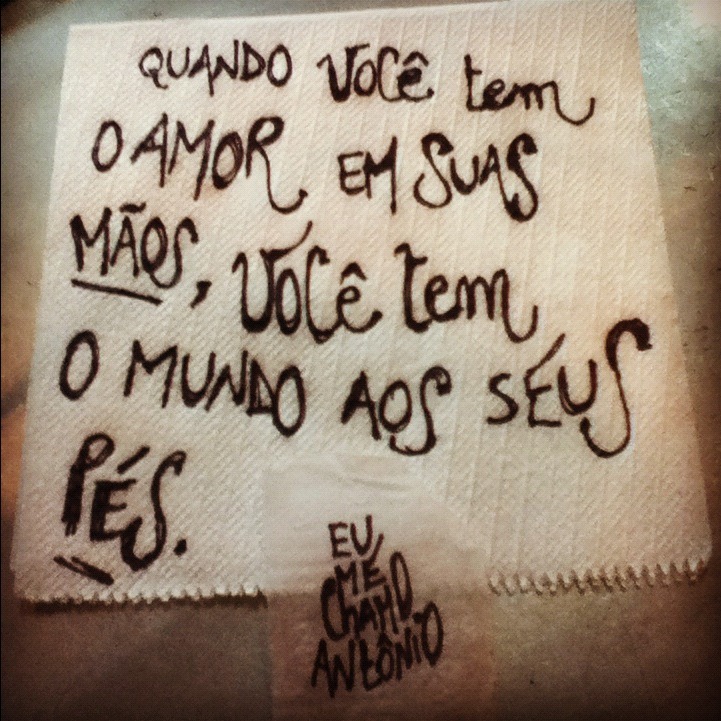 QUANDO você tem
O AMOR EM SUAS
MÃOS, você tem
O MUNDO AOS SEUS
PÉS.
EU
ME
CHAMO
ANTÔNIO